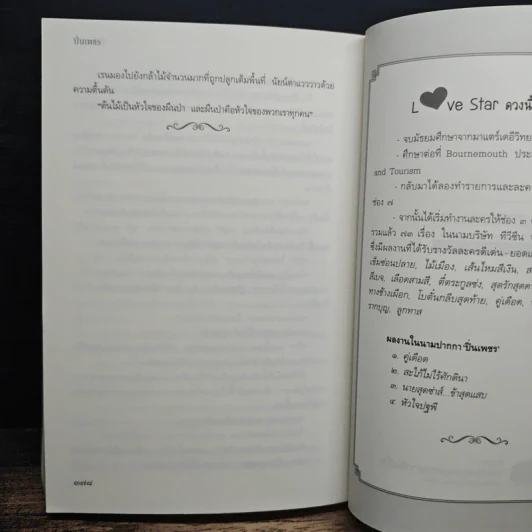 ปิ่นเพชร
เรนมองไปยังกล้าไม้จำนวนมากที่ถูกปลูกเต็มพื้นที่ นัยน์ตาแวววาวด้วย
ความตื้นตัน
"ต้นไม้เป็นหัวใจของผืนป่า และผืนป่าคือหัวใจของพวกเราทุกคน"
๓๗๘
L❤ve Star ดวงนี้
- จบมัธยมศึกษาจากมาแตร์เดอีวิทย
- ศึกษาต่อที่ Bournemouth ประ
and Tourism
- กลับมาได้ลองทำรายการและละค
ช่อง ๗
- จากนั้นได้เริ่มทำงานละครให้ช่อง ๓
รวมแล้ว ๗๓ เรื่อง ในนามบริษัท ทีวีซีน
ซึ่งมีผลงานที่ได้รับรางวัลละครดีเด่น-ยอดเ
เข็มซ่อนปลาย, ไม้เมือง, เส้นไหมสีเงิน,
สีเบจ, เลือดสามสี, ตี๋ตระกูลซ่ง, สุดรักสุดด
ทางช้างเผือก, โบตั๋นกลีบสุดท้าย, คู่เดือด,
รากบุญ, ลูกทาส
ผลงานในนามปากกา 'ปิ่นเพชร'
๑. คู่เดือด
๒. สะใภ้ไม่ไร้ศักดินา
๓. นายสุดซ่าส์...ข้าสุดแสบ
๔. หัวใจปฐพี